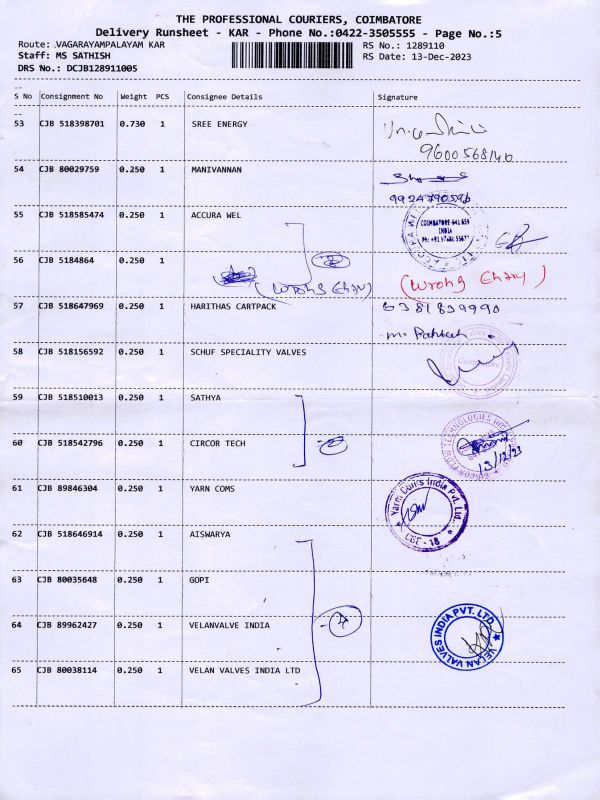 THE PROFESSIONAL COURIERS, COIMBATORE
Delivery Runsheet - KAR - Phone No.:0422-3505555 - Page No.:5
Route: VAGARAYAMPALAYAM KAR
RS No.: 1289110
Staff: MS SATHISH
RS Date: 13-Dec-2023
DRS No.: DCJB128911005
S No Consignment No Weight PCS Consignee Details Signature
53 CJB 518398701 0.730 1 SREE ENERGY
9600568140
54 CJB 80029759 0.250 1 MANIVANNAN
9924790596
55 CJB 518585474 0.250 1 ACCURA WEL
COIMBATORE-641 659
INDIA
56 CJB 5184864 0.250 1
(Wrong Entry) (Wrong Entry)
57 CJB 518647969 0.250 1 HARITHAS CARTPACK
6381839990
58 CJB 518156592 0.250 1 SCHUF SPECIALITY VALVES
Coimbatore
59 CJB 518510013 0.250 1 SATHYA
60 CJB 518542796 0.250 1 CIRCOR TECH
13/12/23
61 CJB 89846304 0.250 1 YARN COMS
Yarn Coms India Pvt. Ltd.,
CBE - 18
62 CJB 518646914 0.250 1 AISWARYA
63 CJB 80035648 0.250 1 GOPI
4
64 CJB 89962427 0.250 1 VELANVALVE INDIA
VELAN VALVES INDIA PVT. LTD.
65 CJB 80038114 0.250 1 VELAN VALVES INDIA LTD